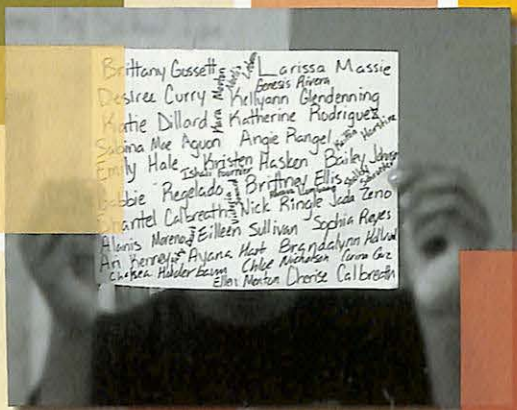 Brittany Gossett Larissa Massie
Genesis Rivera
Desiree Curry Kara Morton Kellyann Glendenning
Katie Dillard Katherine Rodriguez
Sabina Mae Aguon Angie Rangel
Emily Hale Kristen Hasken Bailey Johnson
Ishah Fournier
Bobbie Regelado Brittney Ellis
Chantel Calbreath Nick Ringle Jada Zeno
Alanis Moreno Eilleen Sullivan Sophia Reyes
Ari Kerrey Ayana Hart Brandalynn
Chelsea Halderbaum Chloe Nicholson
Ellen Morton Cherise Calbreath